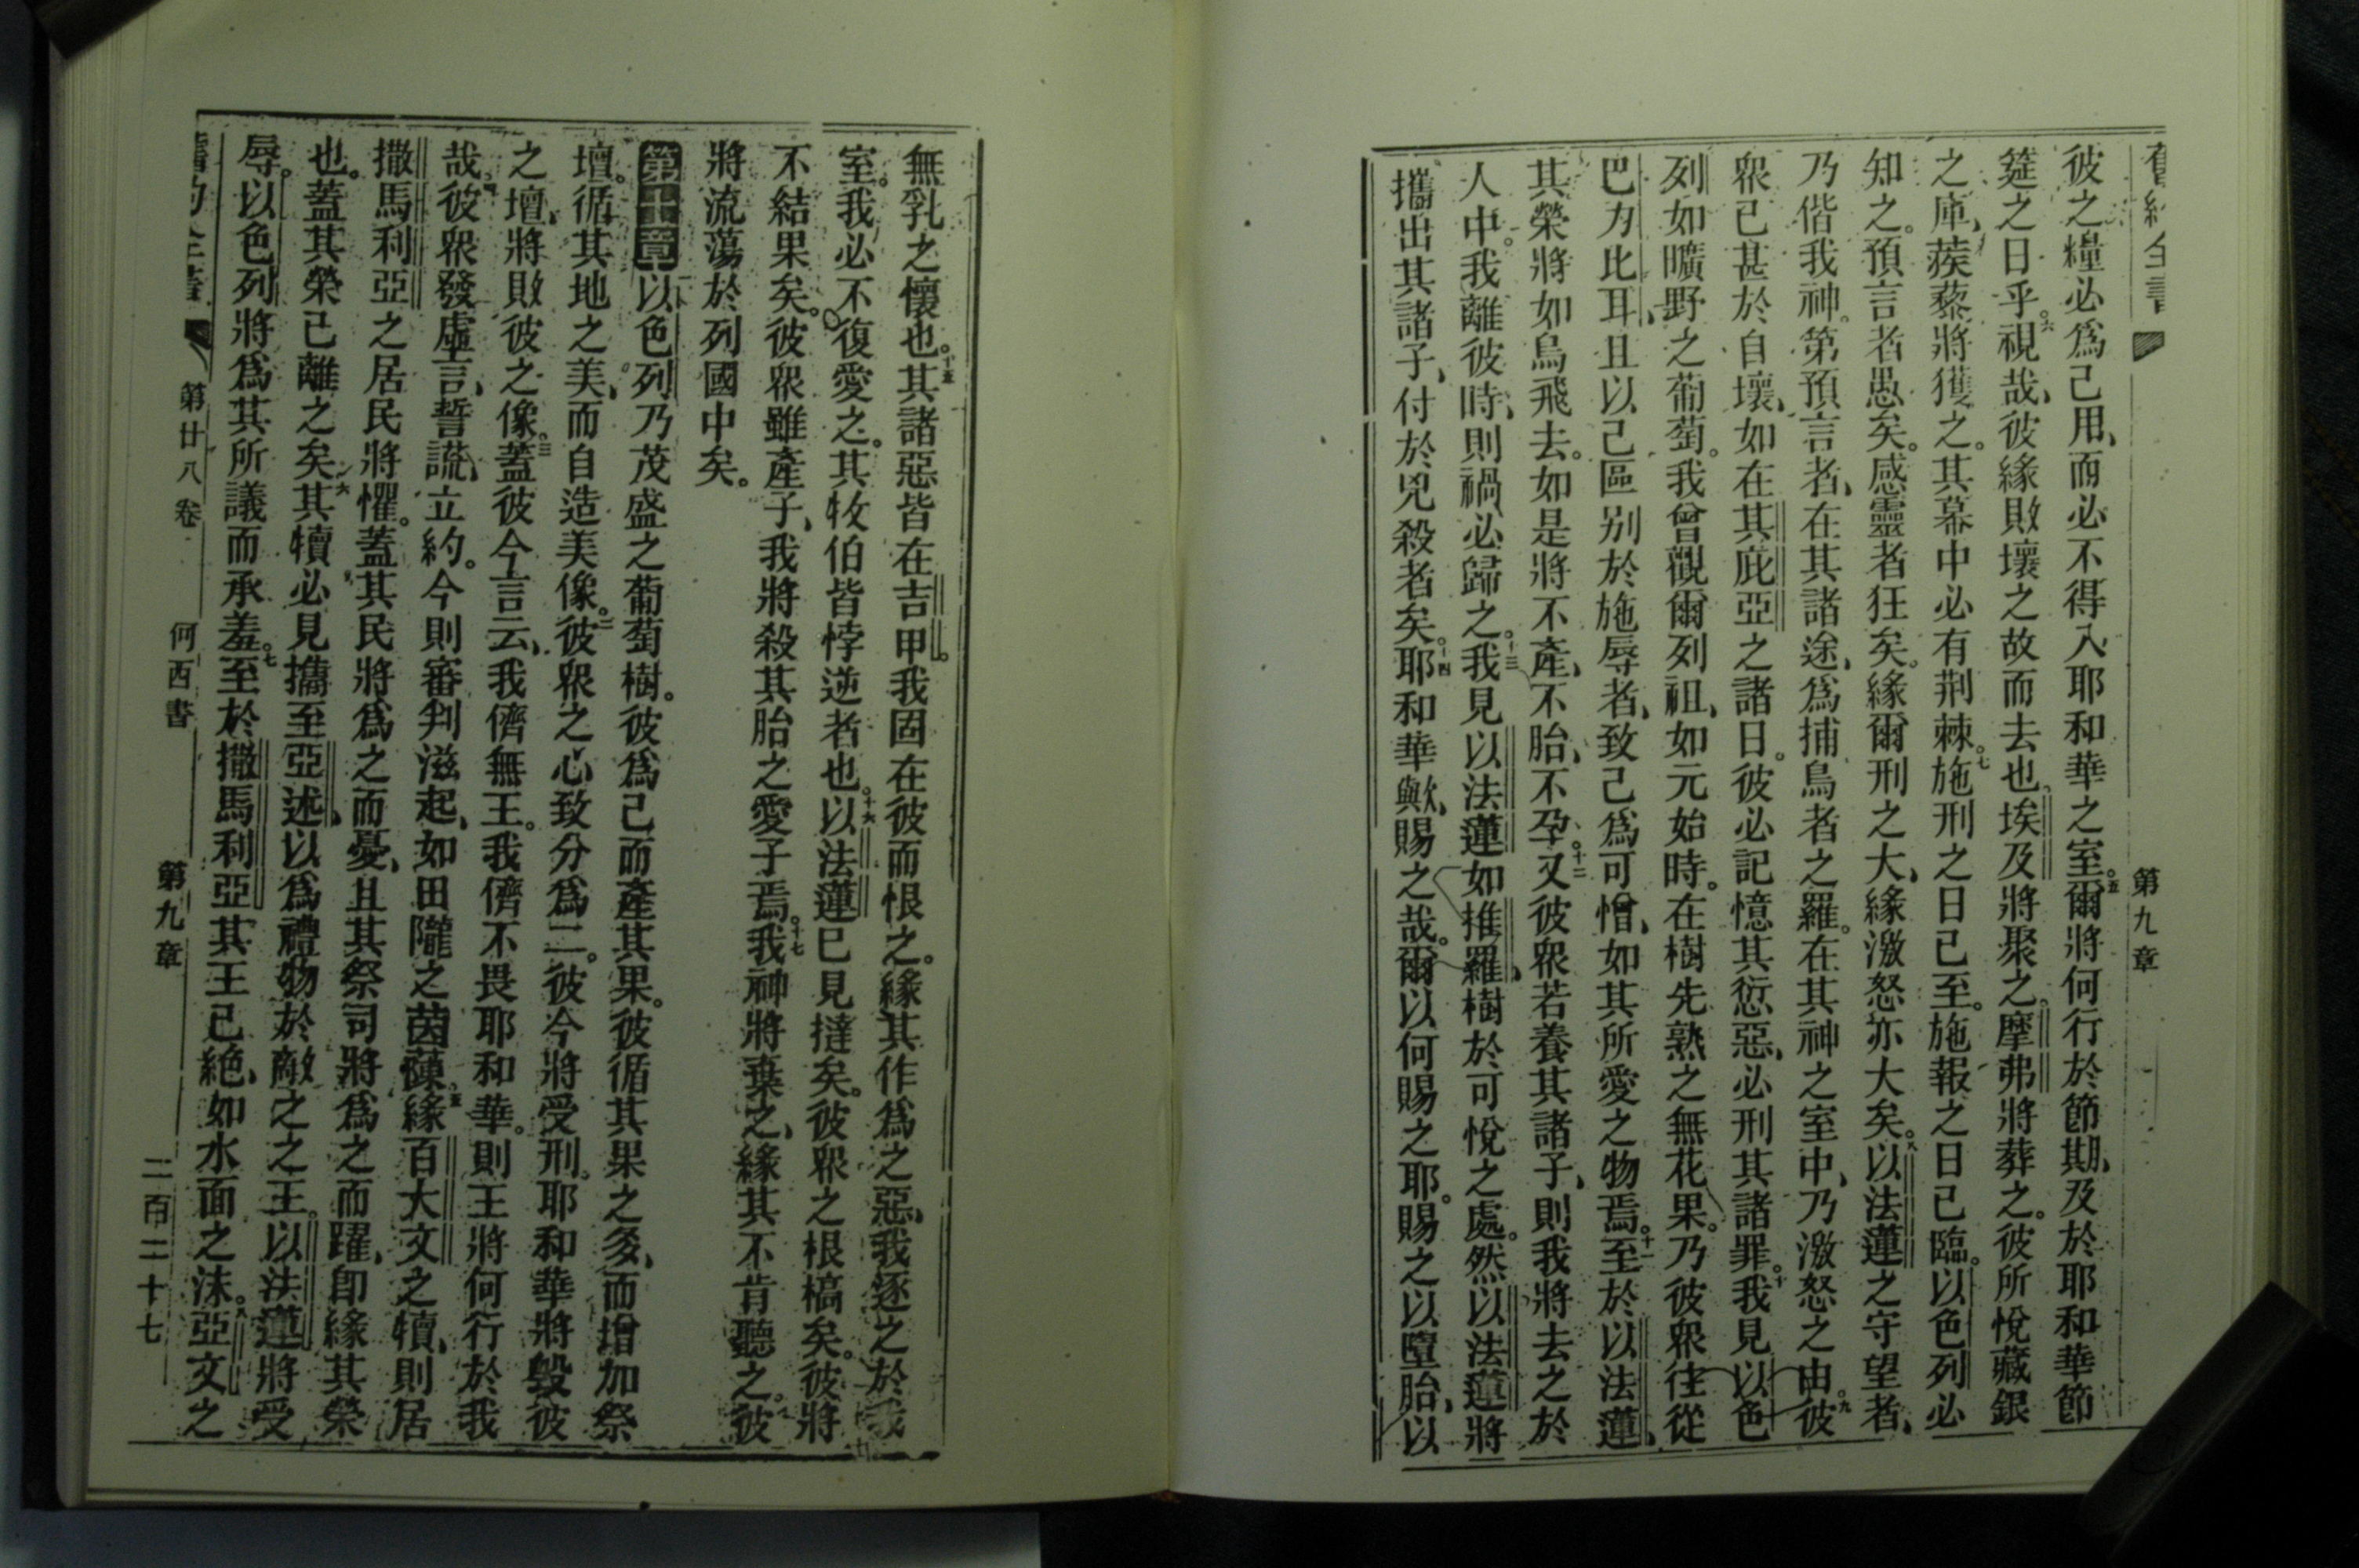 第九章
彼之糧必爲己用、而必不得入耶和華之室。五爾將何行於節期、及於耶和華節
筵之日乎。六視哉、彼緣敗壞之故而去也、埃及將聚之。摩弗將葬之。彼所悅藏銀
之庫、蒺藜將獲之。其幕中必有荆棘。七施刑之日已至。施報之日已臨。以色列必
知之。預言者愚矣。感靈者狂矣。緣爾刑之大、緣激怒亦大矣。八以法蓮之守望者、
乃偕我神。第預言者、在其諸途、爲捕鳥者之羅。在其神之室中、乃激怒之由。九彼
衆已甚於自壞、如在其庇亞之諸日。彼必記憶其愆惡、必刑其諸罪。十我見以色
列如曠野之葡萄。我曾觀爾列祖、如元始時。在樹先熟之無花果。乃彼衆往從
巴力比耳、且以己區别於施辱者、致己爲可憎、如其所愛之物焉。十一至於以法蓮、
其榮將如鳥飛去。如是將不產、不胎、不孕。十二又彼衆若養其諸子、則我將去之於
人中。我離彼時、則禍必歸之。十三我見以法蓮如推羅、樹於可悅之處。然以法蓮將
攜出其諸子、付於兇殺者矣。十四耶和華歟、賜之哉。爾以何賜之耶。賜之以墮胎、以
無乳之懷也。十五其諸惡皆在吉甲。我固在彼而恨之。緣其作爲之惡、我逐之於我
室。我必不復愛之。其牧伯皆悖逆者也。十六以法蓮已見撻矣。彼衆之根槁矣。彼將
不結果矣。彼衆雖產子、我將殺其胎之愛子焉。十七我神將棄之、緣其不肯聽之。彼
將流蕩於列國中矣。
第十章一以色列乃茂盛之葡萄樹。彼爲己而產其果。彼循其果之多、而增加祭
壇。循其地之美、而自造美像。二彼衆之心致分爲二。彼今將受刑。耶和華將毀彼
之壇、將敗彼之像。三蓋彼今言云、我儕無王。我儕不畏耶和華。則王將何行於我
哉。四彼衆發虛言、誓謊、立約。今則審判滋起、如田隴之茵蔯。五緣百大文之犢、則居
撒馬利亞之居民將懼。蓋其民將爲之而憂、且其祭司將爲之而躍、卽緣其榮
也。蓋其榮已離之矣。六其犢必見攜至亞述、以爲禮物於敵之之王。以法蓮將受
辱。以色列將爲其所議而承羞。七至於撒馬利亞其王已絶、如水面之沫。八亞文之
第廿八卷 何西書 第九章 二百二十七